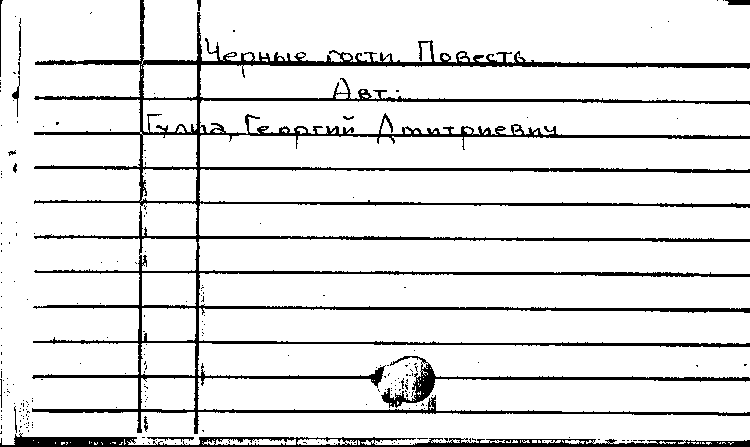 Черные гости. Повесть.
Авт.:
Гулиа, Георгий Дмитриевич